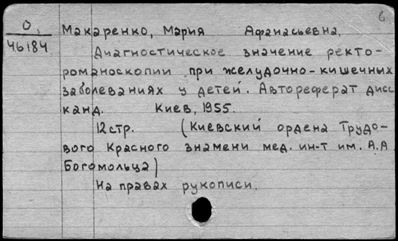 6
О.
46184
Макаренко, Мария Афанасьевна.
Диагностическое значение ректо-
романоскопии при желудочно-кишечных
заболеваниях у детей. Автореферат дисс.
канд. Киев, 1955.
12стр. (Киевский ордена Трудо-
вого Красного знамени мед. ин-т им. А.А.
Богомольца)
На правах рукописи.